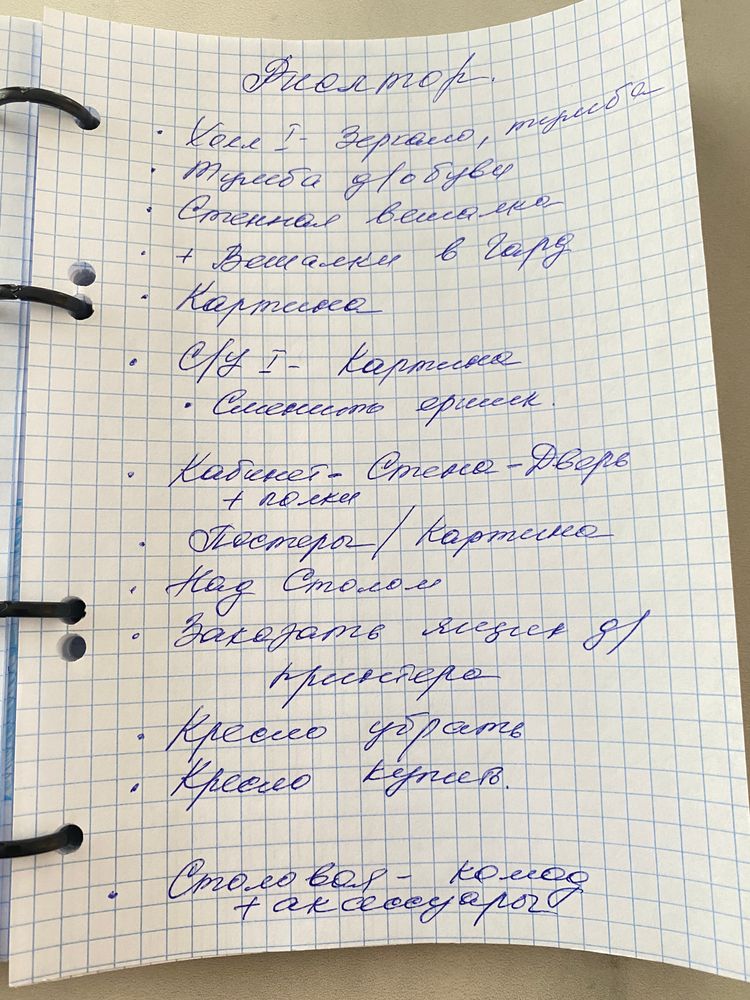 Риэлтор.
· Холл I - Зеркало, тумба
· Тумба д/обуви
· Стенная вешалка
· + Вешалки в Гард
· Картина
· С/У I - Картина
· Сменить ершик.
· Кабинет - Стена - Дверь
+ полки
· Постеры / Картина
· Над Столом
· Заказать ящик д/
принтера
· Кресло убрать
· Кресло купить.
· Столовая - комод
+ аксессуары